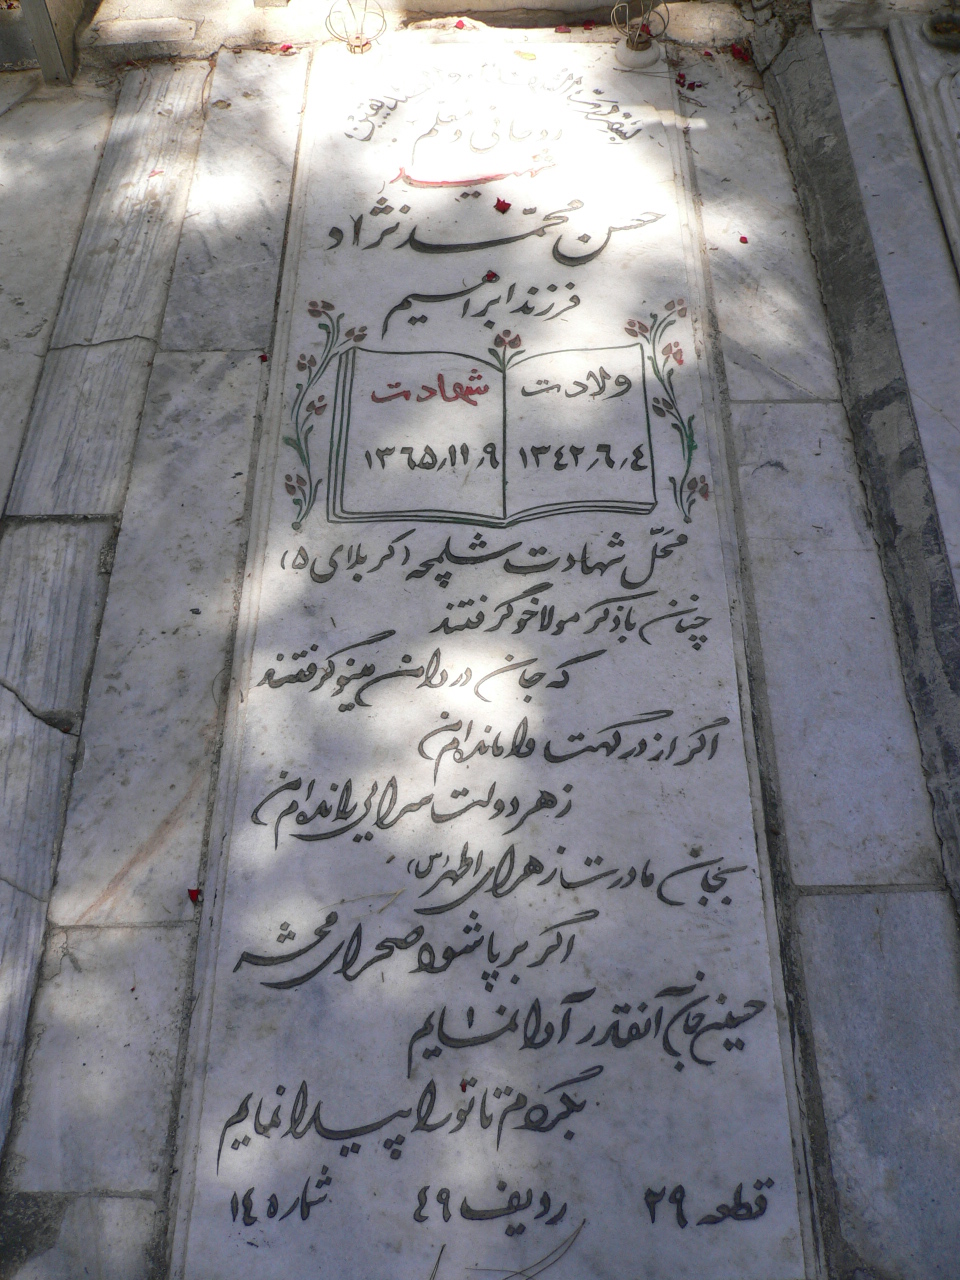 روحانی و معلم
شهید
حسن محمد نژاد
فرزند ابراهیم
ولادت
۱۳۴۲٫۶٫۴
شهادت
۱۳۶۵٫۱۱٫۹
محلّ شهادت شلمچه (کربلای ۵)
چنان با ذکر مولا خو گرفتند
که جان در دامن مینو گرفتند
اگر از در گهت وا مانده‌ام من
زهر دولت سرایی رانده‌ام من
بجان مادرت زهرای اطهر(س)
اگر بر پا شود صحرای محشر
حسین جان آنقدر آوا نمایم
بگردم تا تو را پیدا نمایم
قطعه ۲۹ ردیف ۴۹ شماره ۱۴